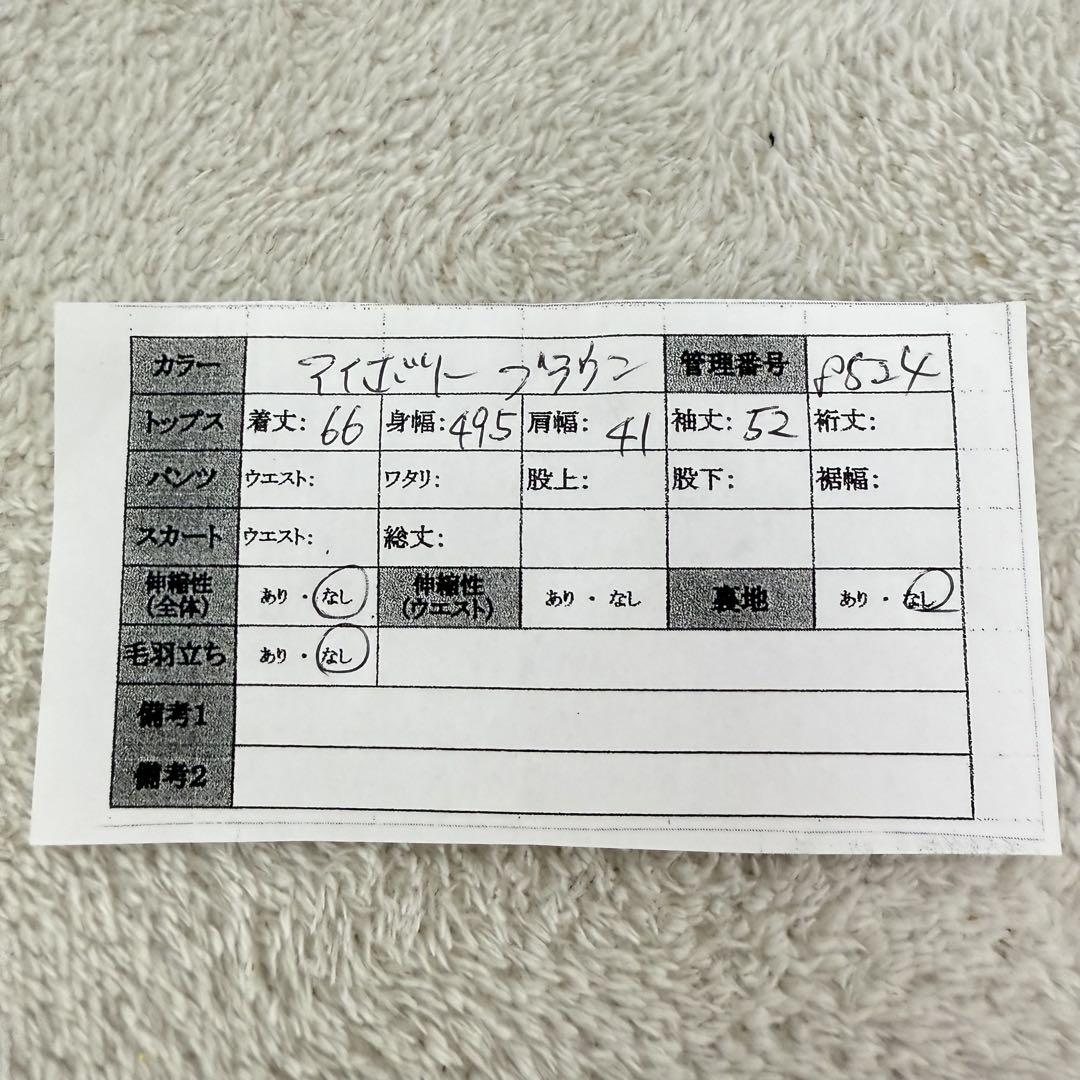 カラー アイボリー ブラウン 管理番号 P524
トップス 着丈: 66 身幅: 49.5 肩幅: 41 袖丈: 52 裄丈:
パンツ ウエスト: ワタリ: 股上: 股下: 裾幅:
スカート ウエスト: 総丈:
伸縮性 (全体) あり ・ なし 伸縮性 (ウエスト) あり ・ なし 裏地 あり ・ なし
毛羽立ち あり ・ なし
備考1
備考2